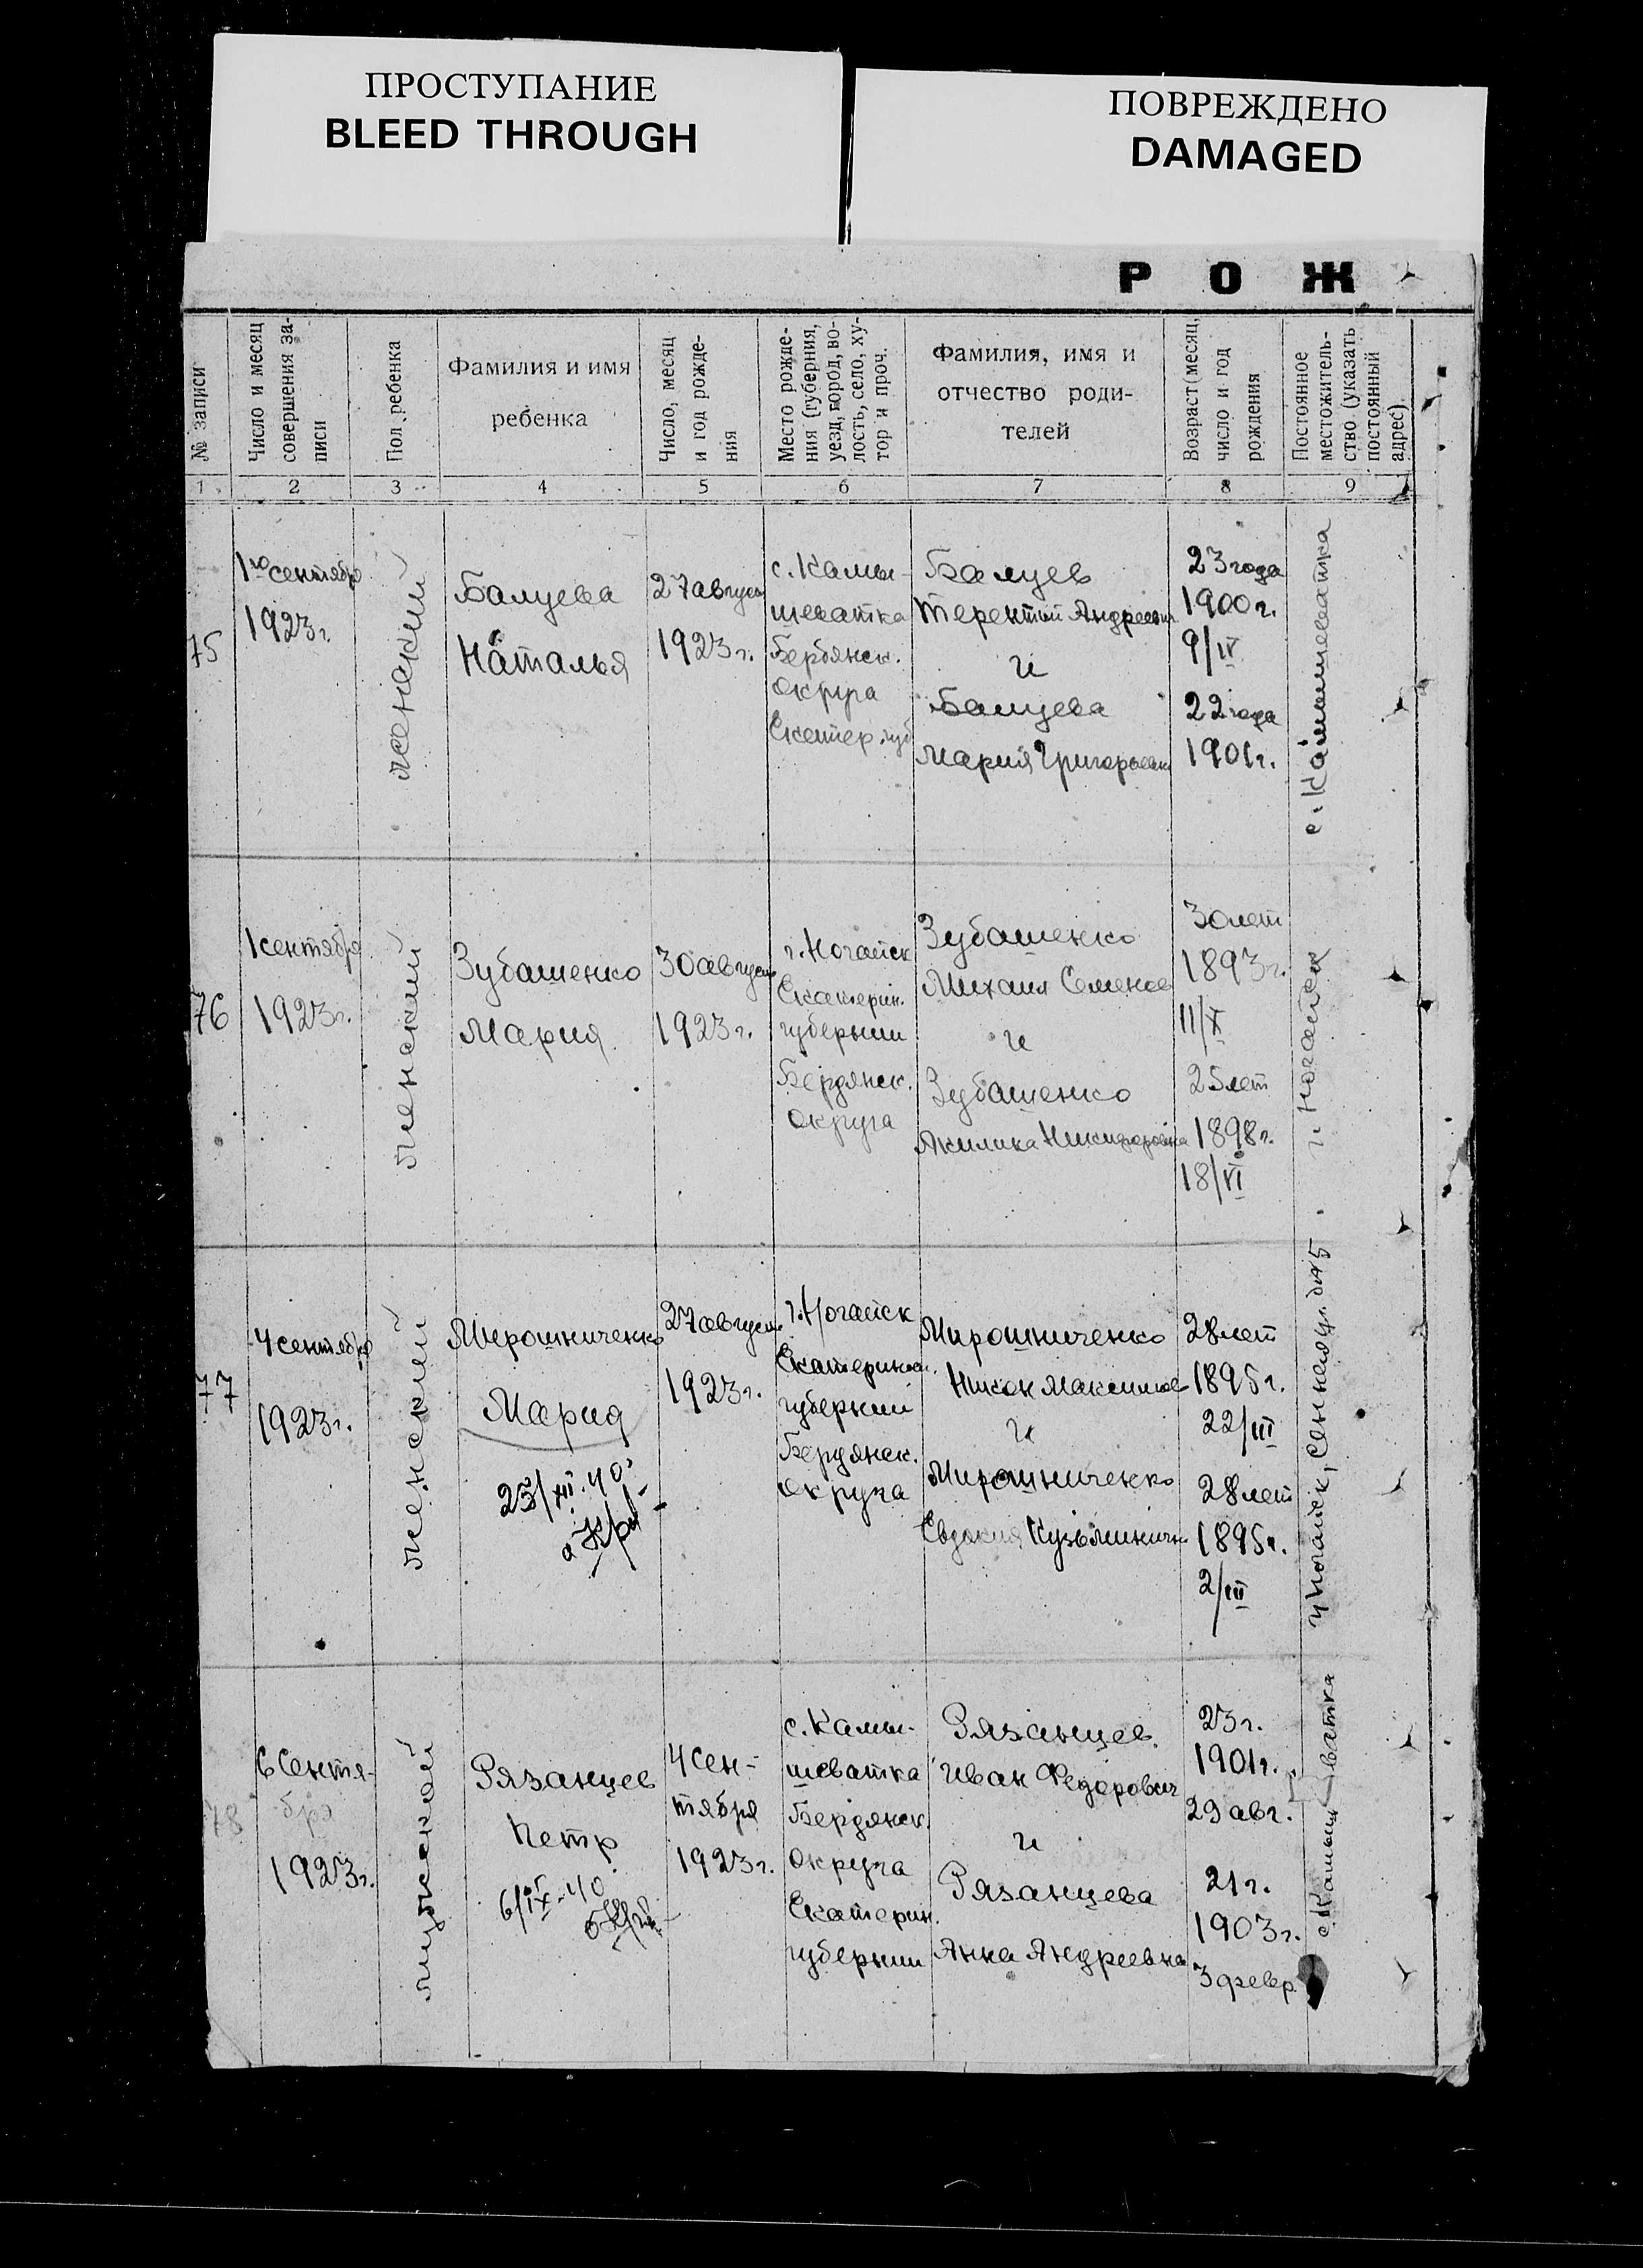 ПРОСТУПАНИЕ
BLEED THROUGH
ПОВРЕЖДЕНО
DAMAGED
Р О Ж
№ записи
Число и месяц
совершения за-
писи
Пол ребенка
Фамилия и имя
ребенка
Число, месяц
и год рожде-
ния
Место рожде-
ния (губерния,
уезд, город, во-
лость, село, ху-
тор и проч.
Фамилия, имя и
отчество роди-
телей
Возраст (месяц,
число и год
рождения
Постоянное
местожитель-
ство (указать
постоянный
адрес).
1 2 3 4 5 6 7 8 9
75
1го сентября
1923 г.
женский
Балуева
Наталья
27 август
1923 г.
с. Камы-
шеватка
Бердянск.
округа
Екатер. губ
Балуев
Терентий Андреевич
и
Балуева
Мария Григорьевна
23 года
1900 г.
9/IV
22 года
1901 г.
с. Камышеватка
76
1 сентября
1923 г.
женский
Зубашенко
Мария
30 август
1923 г.
г. Ногайск
Екатерин.
губернии
Бердянск.
округа
Зубашенко
Михаил Семенов
и
Зубашенко
Акилина Никифоровна
30 лет
1893 г.
11/X
25 лет
1898 г.
18/VI
г. Ногайск
77
4 сентября
1923 г.
женский
Мирошниченко
Мария
23/XII.40
27 август
1923 г.
г. Ногайск
Екатеринос.
губернии
Бердянск.
округа
Мирошниченко
Никон Максимов
и
Мирошниченко
Евдокия Кузьминичн
28 лет
1895 г.
22/III
28 лет
1895 г.
2/III
г Ногайск, Сенная ул.
78
6 Сентя-
бря
1923 г.
мужской
Рязанцев
Петр
6/IX-40
4 Сен-
тября
1923 г.
с. Камы-
шеватка
Бердянск.
округа
Екатерин.
губернии
Рязанцев
Иван Федорович
и
Рязанцева
Анна Андреевна
23 г.
1901 г.
29 авг.
21 г.
1903 г.
3 февр.
с. Камышеватка